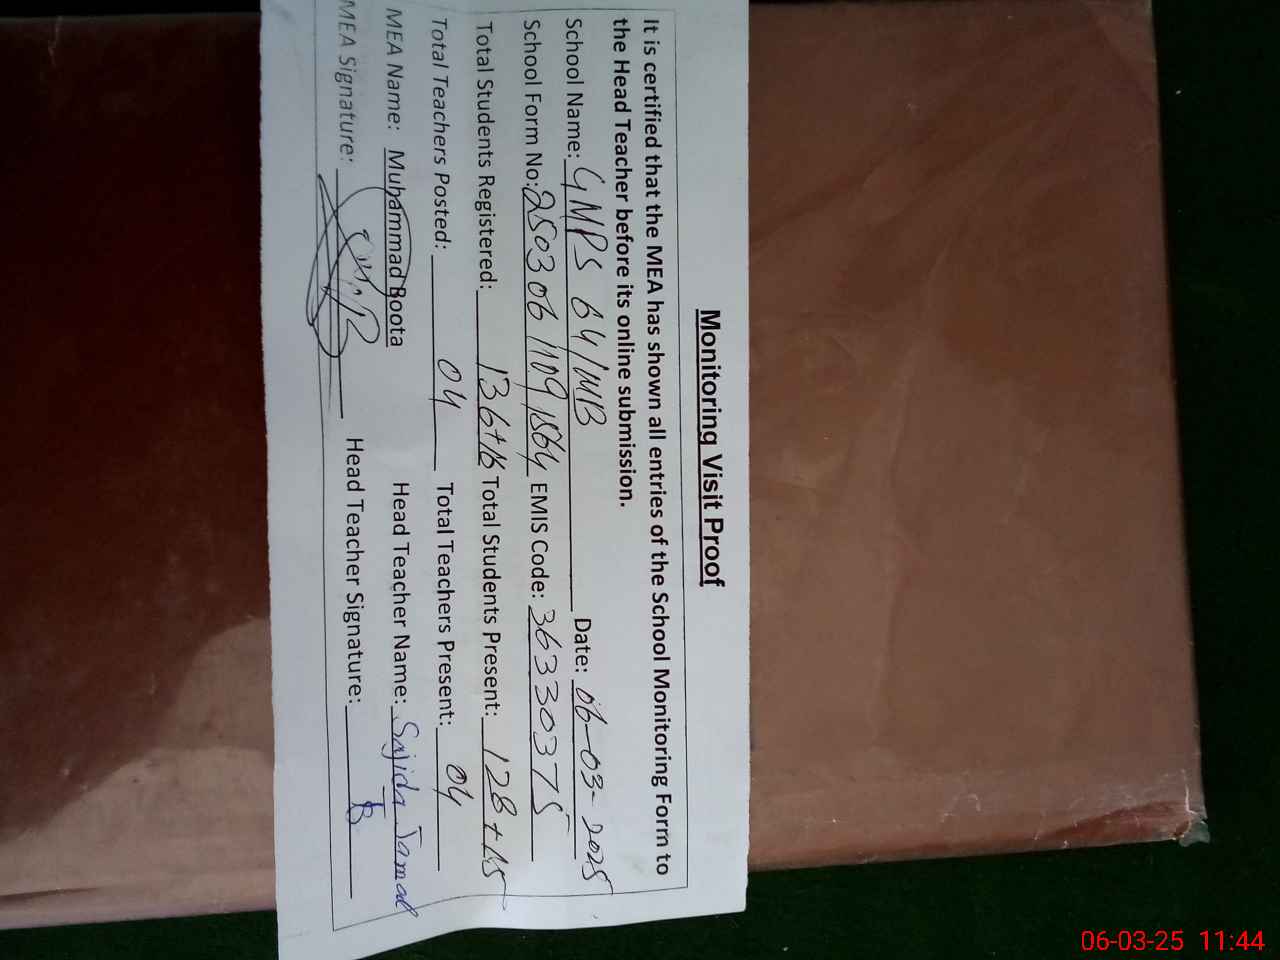 Monitoring Visit Proof
It is certified that the MEA has shown all entries of the School Monitoring Form to
the Head Teacher before its online submission.
School Name: GMPS 64/MB Date: 06-03-2025
School Form No: 250306 1109 1864 EMIS Code: 36330375
Total Students Registered: 136+16 Total Students Present: 128+15
Total Teachers Posted: 04 Total Teachers Present: 04
MEA Name: Muhammad Boota Head Teacher Name: Sajida Jamal
MEA Signature: Head Teacher Signature:
06-03-25 11:44